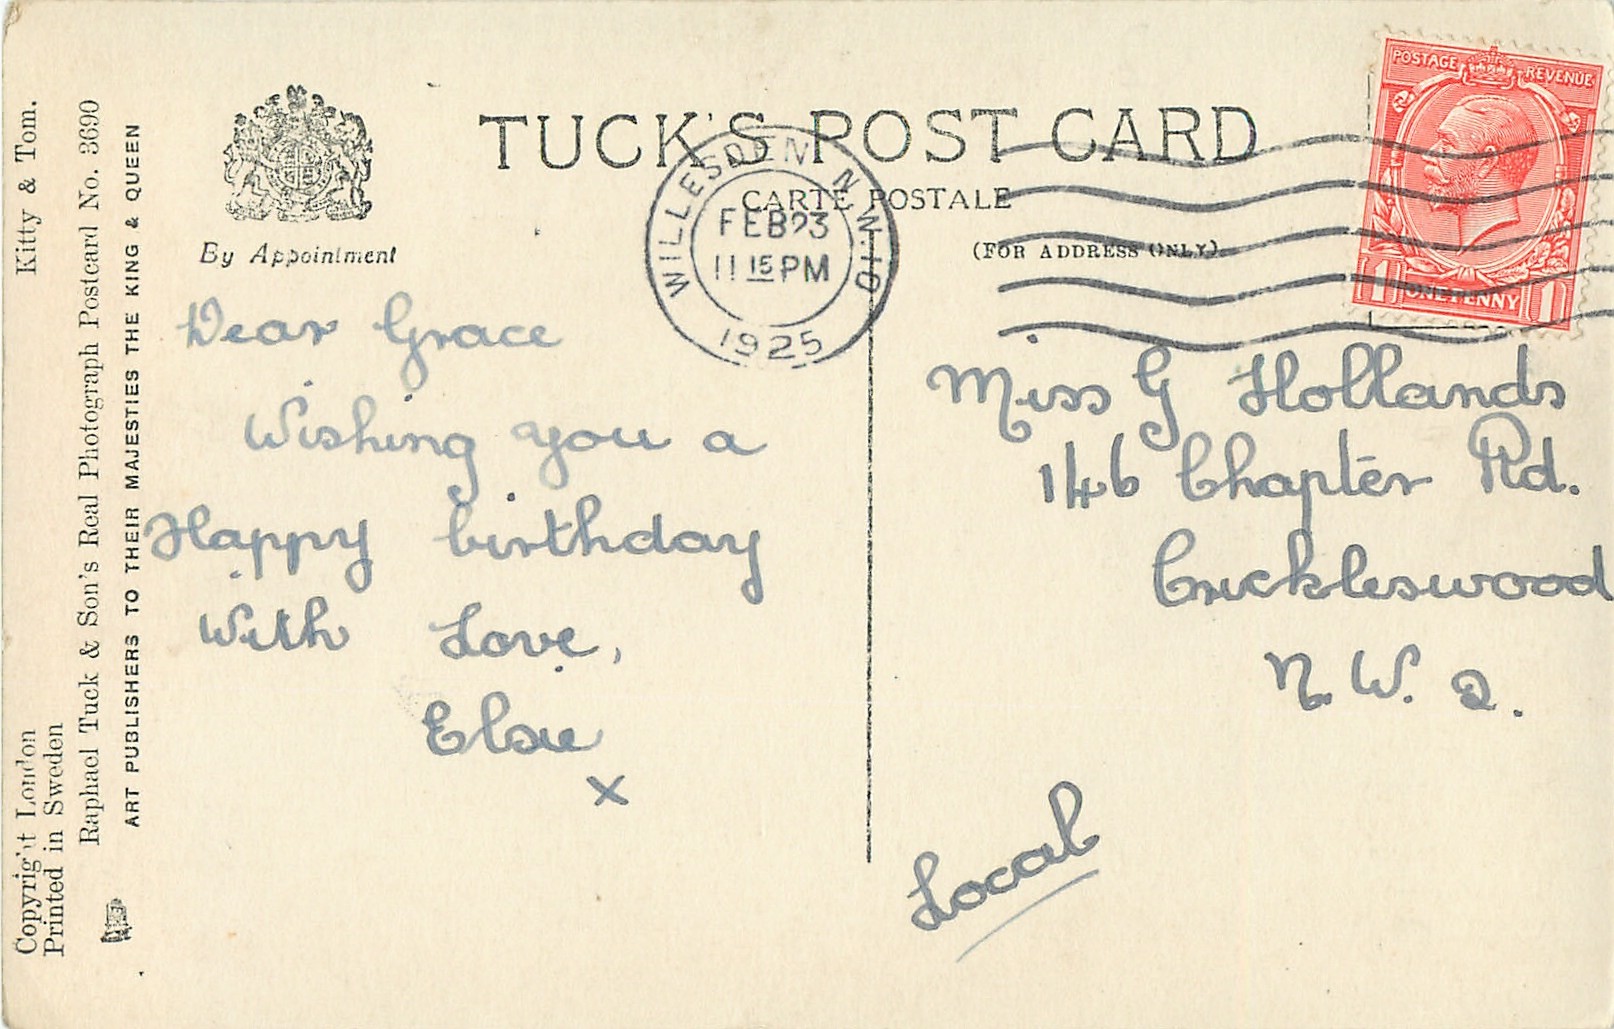 Kitty & Tom.
Copyright London
Printed in Sweden
Raphael Tuck & Son's Real Photograph Postcard No. 3690
ART PUBLISHERS TO THEIR MAJESTIES THE KING & QUEEN
By Appointment
TUCK'S POST CARD
CARTE POSTALE
(FOR ADDRESS ONLY)
WILLESDEN N.W.10
FEB 23
11 15 PM
1925
POSTAGE REVENUE
1 ONE PENNY 1
Dear Grace
Wishing you a
Happy birthday
With Love,
Elsie
x
Miss G Hollands
146 Chapter Rd.
Crickleswood
N. W. 2.
Local